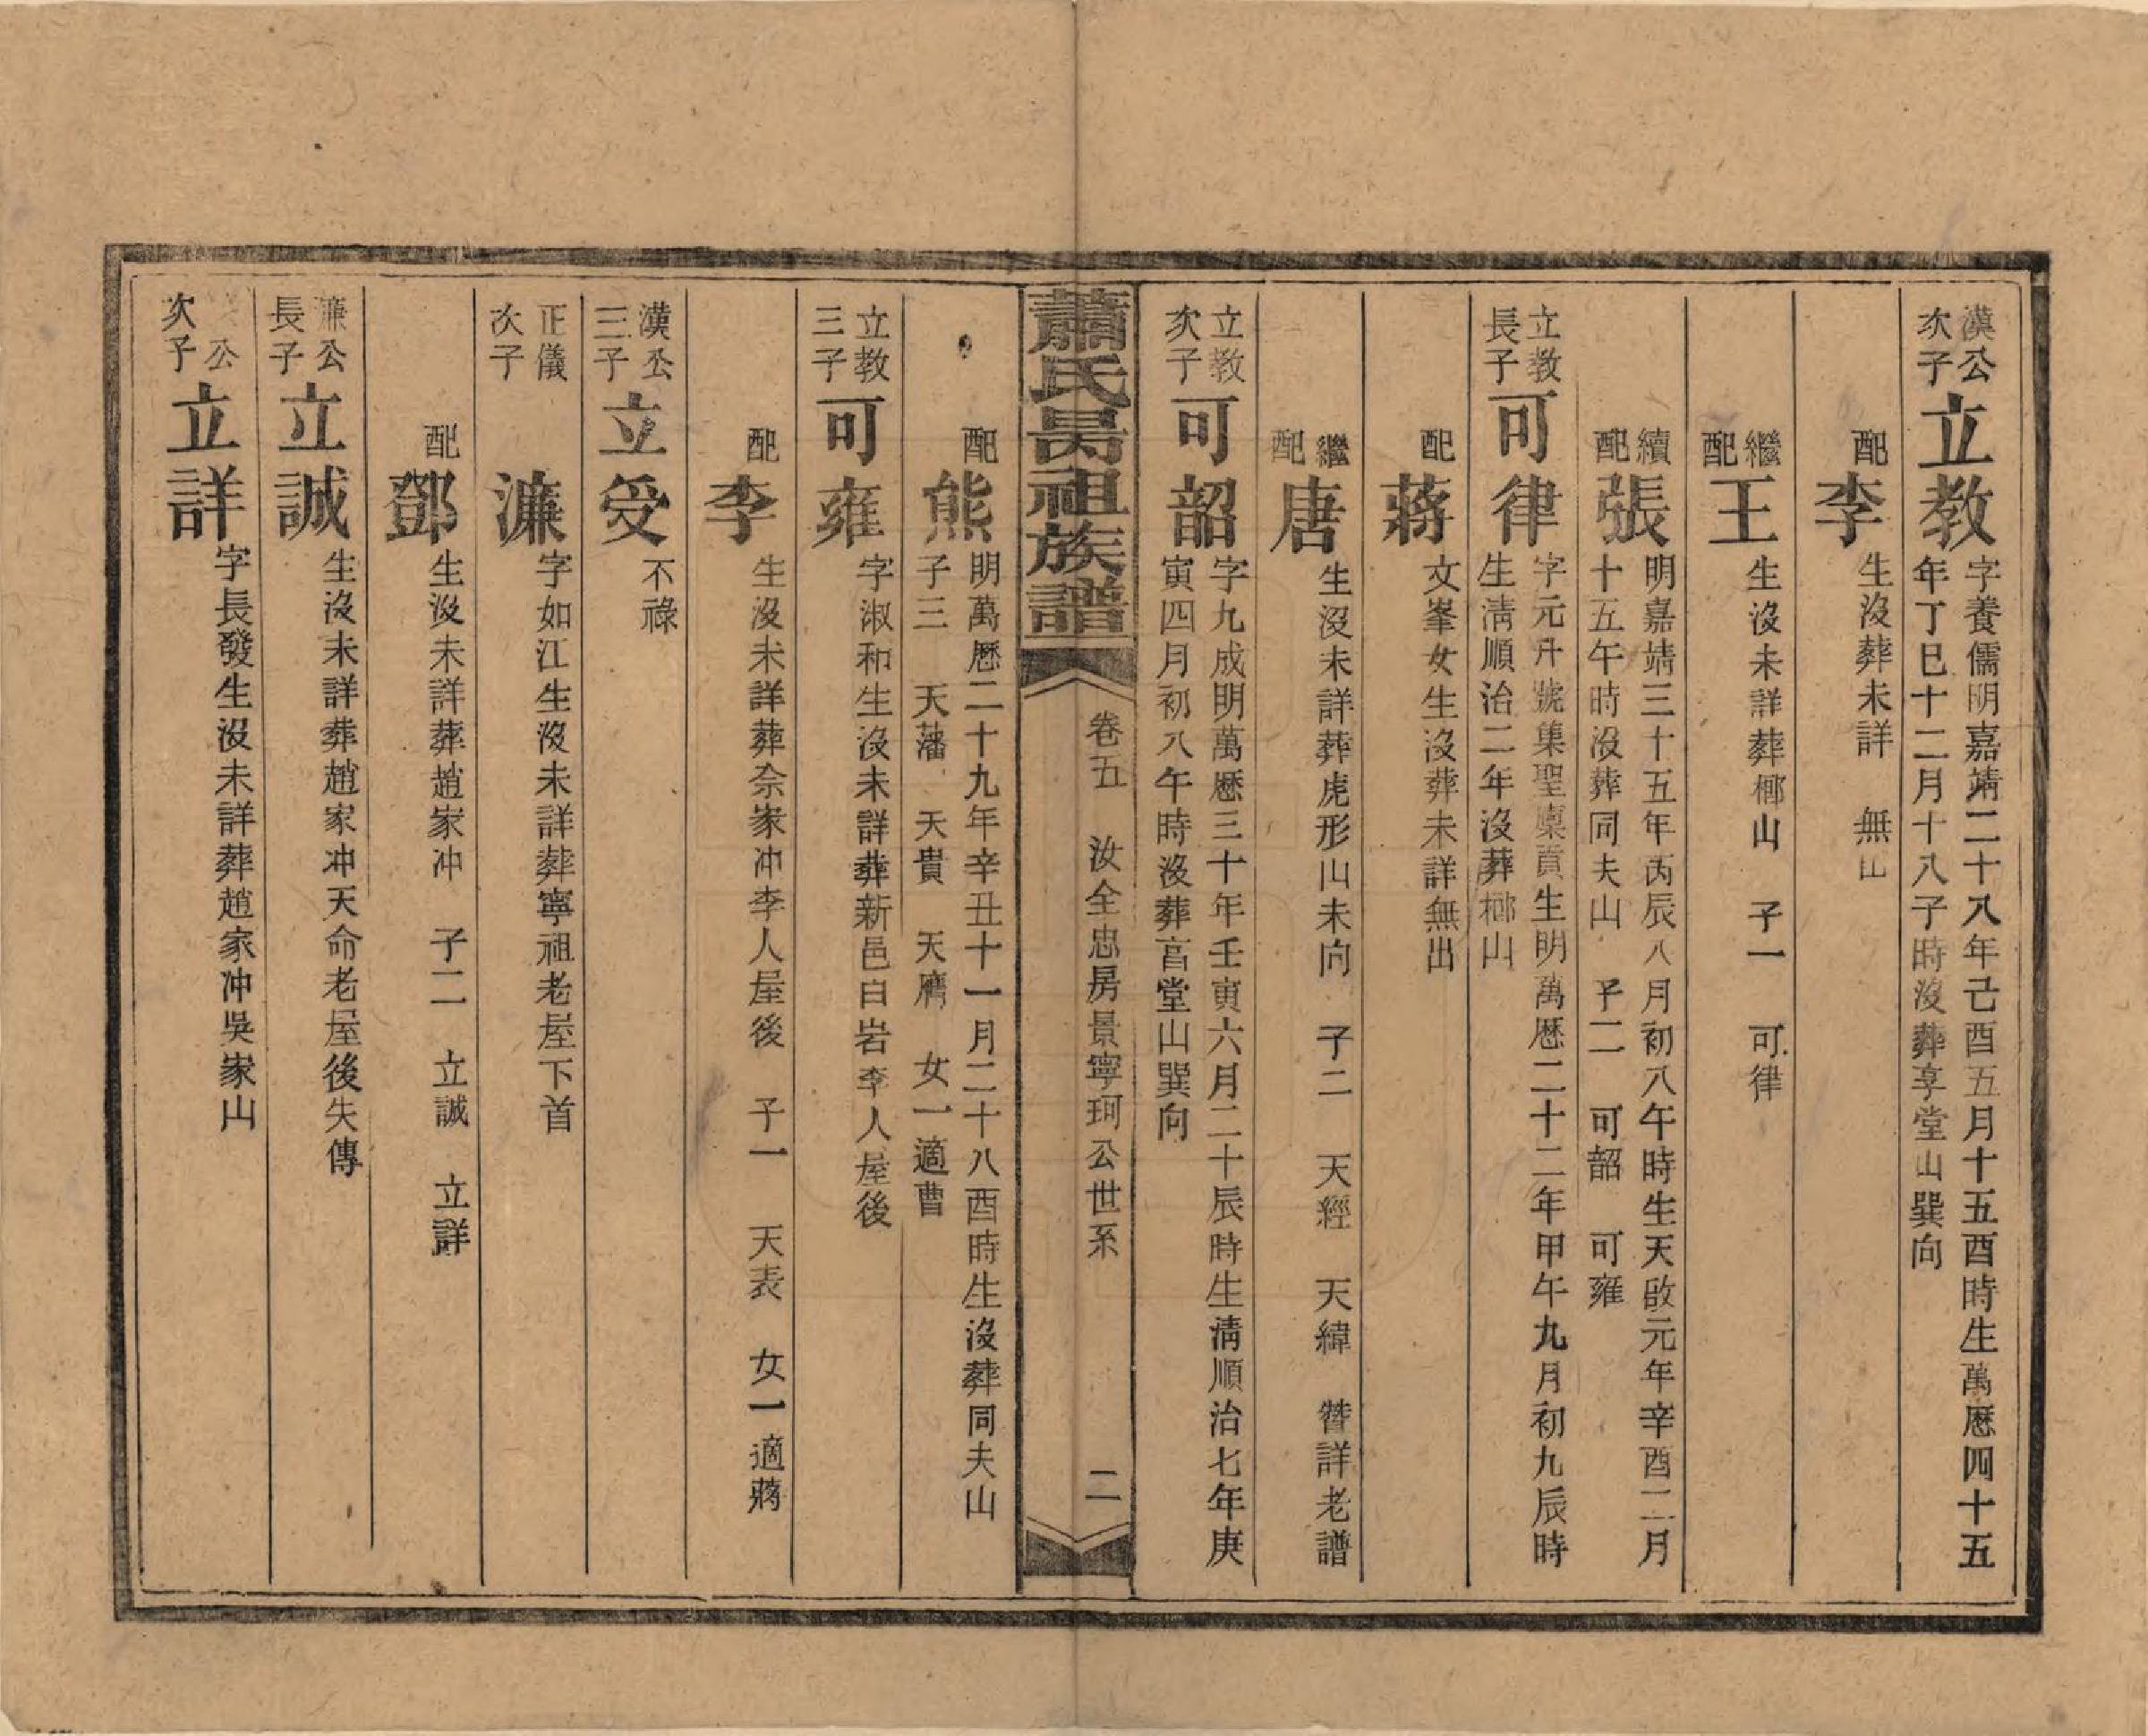 漢公
次子
立教
字養儒明嘉靖二十八年己酉五月十五酉時生萬曆四十五
年丁巳十二月十八子時沒葬享堂山巽向
配
李
生沒葬未詳 無出
繼
配
王
生沒未詳葬櫛山 子一 可律
續
配
張
明嘉靖三十五年丙辰八月初八午時生天啟元年辛酉二月
十五午時沒葬同夫山 子二 可韶 可雍
立教
長子
可律
字元升號集聖廩貢生明萬曆二十二年甲午九月初九辰時
生清順治二年沒葬櫛山
配
蔣
文峯女生沒葬未詳無出
繼
配
唐
生沒未詳葬虎形山未向 子二 天經 天緯 贊詳老譜
立教
次子
可韶
字九成明萬曆三十年壬寅六月二十辰時生清順治七年庚
寅四月初八午時沒葬享堂山巽向
蕭氏昺祖族譜
卷五 汝全忠房景寧珂公世系
二
配
熊
明萬曆二十九年辛丑十一月二十八酉時生沒葬同夫山
子三 天藩 天貴 天膺 女一適曹
立教
三子
可雍
字淑和生沒未詳葬新邑白岩李人屋後
配
李
生沒未詳葬佘家冲李人屋後 子一 天表 女一適蔣
漢公
三子
立受
不祿
正儀
次子
濂
字如江生沒未詳葬寧祖老屋下首
配
鄧
生沒未詳葬趙家冲 子二 立誠 立詳
濂公
長子
立誠
生沒未詳葬趙家冲天命老屋後失傳
公
次子
立詳
字長發生沒未詳葬趙家冲吳家山